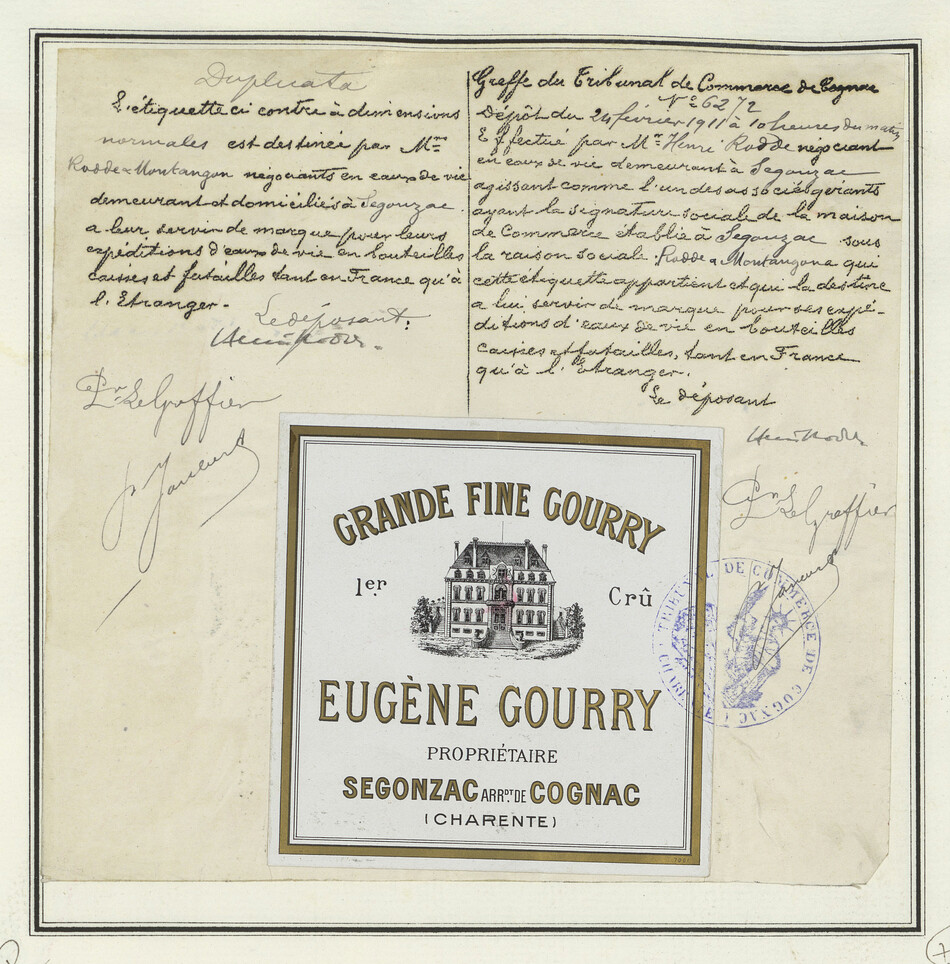 Duplicata
L'étiquette ci contre à dimensions
normales est destinée par Mrs
Rodde & Montangon négociants en eaux de vie
demeurant et domiciliés à Segonzac
a leur servir de marque pour leurs
expéditions d'eaux de vie en bouteilles
caisses et futailles tant en France qu'à
l'Etranger.
Le déposant:
Henri Rodde
Pr Le Greffier
Greffe du Tribunal de Commerce de Cognac
No 6272
Dépôt du 24 février 1911 à 10 heures du matin
Effectué par Mr Henri Rodde négociant
en eaux de vie demeurant à Segonzac
agissant comme l'un des associés gérants
ayant la signature sociale de la maison
de Commerce établie à Segonzac sous
la raison sociale Rodde & Montangon a qui
cette étiquette appartient et qui la destine
a lui servir de marque pour ses expé-
ditions d'eaux de vie en bouteilles
caisses et futailles, tant en France
qu'à l'Etranger.
Le déposant
Henri Rodde
Pr Le Greffier
GRANDE FINE GOURRY
1er Crû
EUGÈNE GOURRY
PROPRIÉTAIRE
SEGONZAC ARRDT DE COGNAC
(CHARENTE)
TRIBUNAL DE COMMERCE DE COGNAC